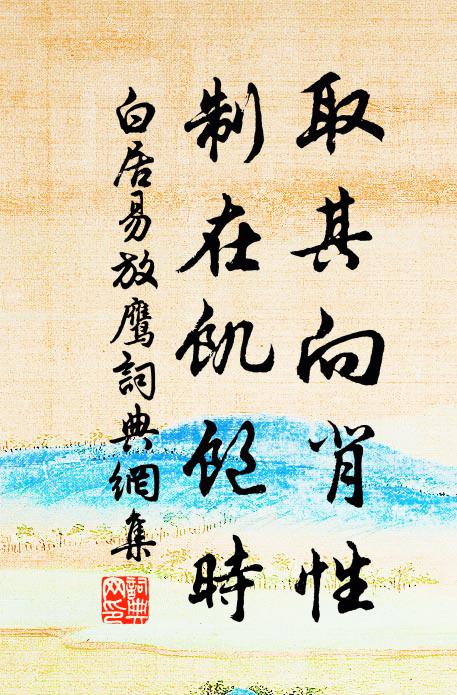 取其向背性
制在飢飽時
白居易放鷹詞典網集